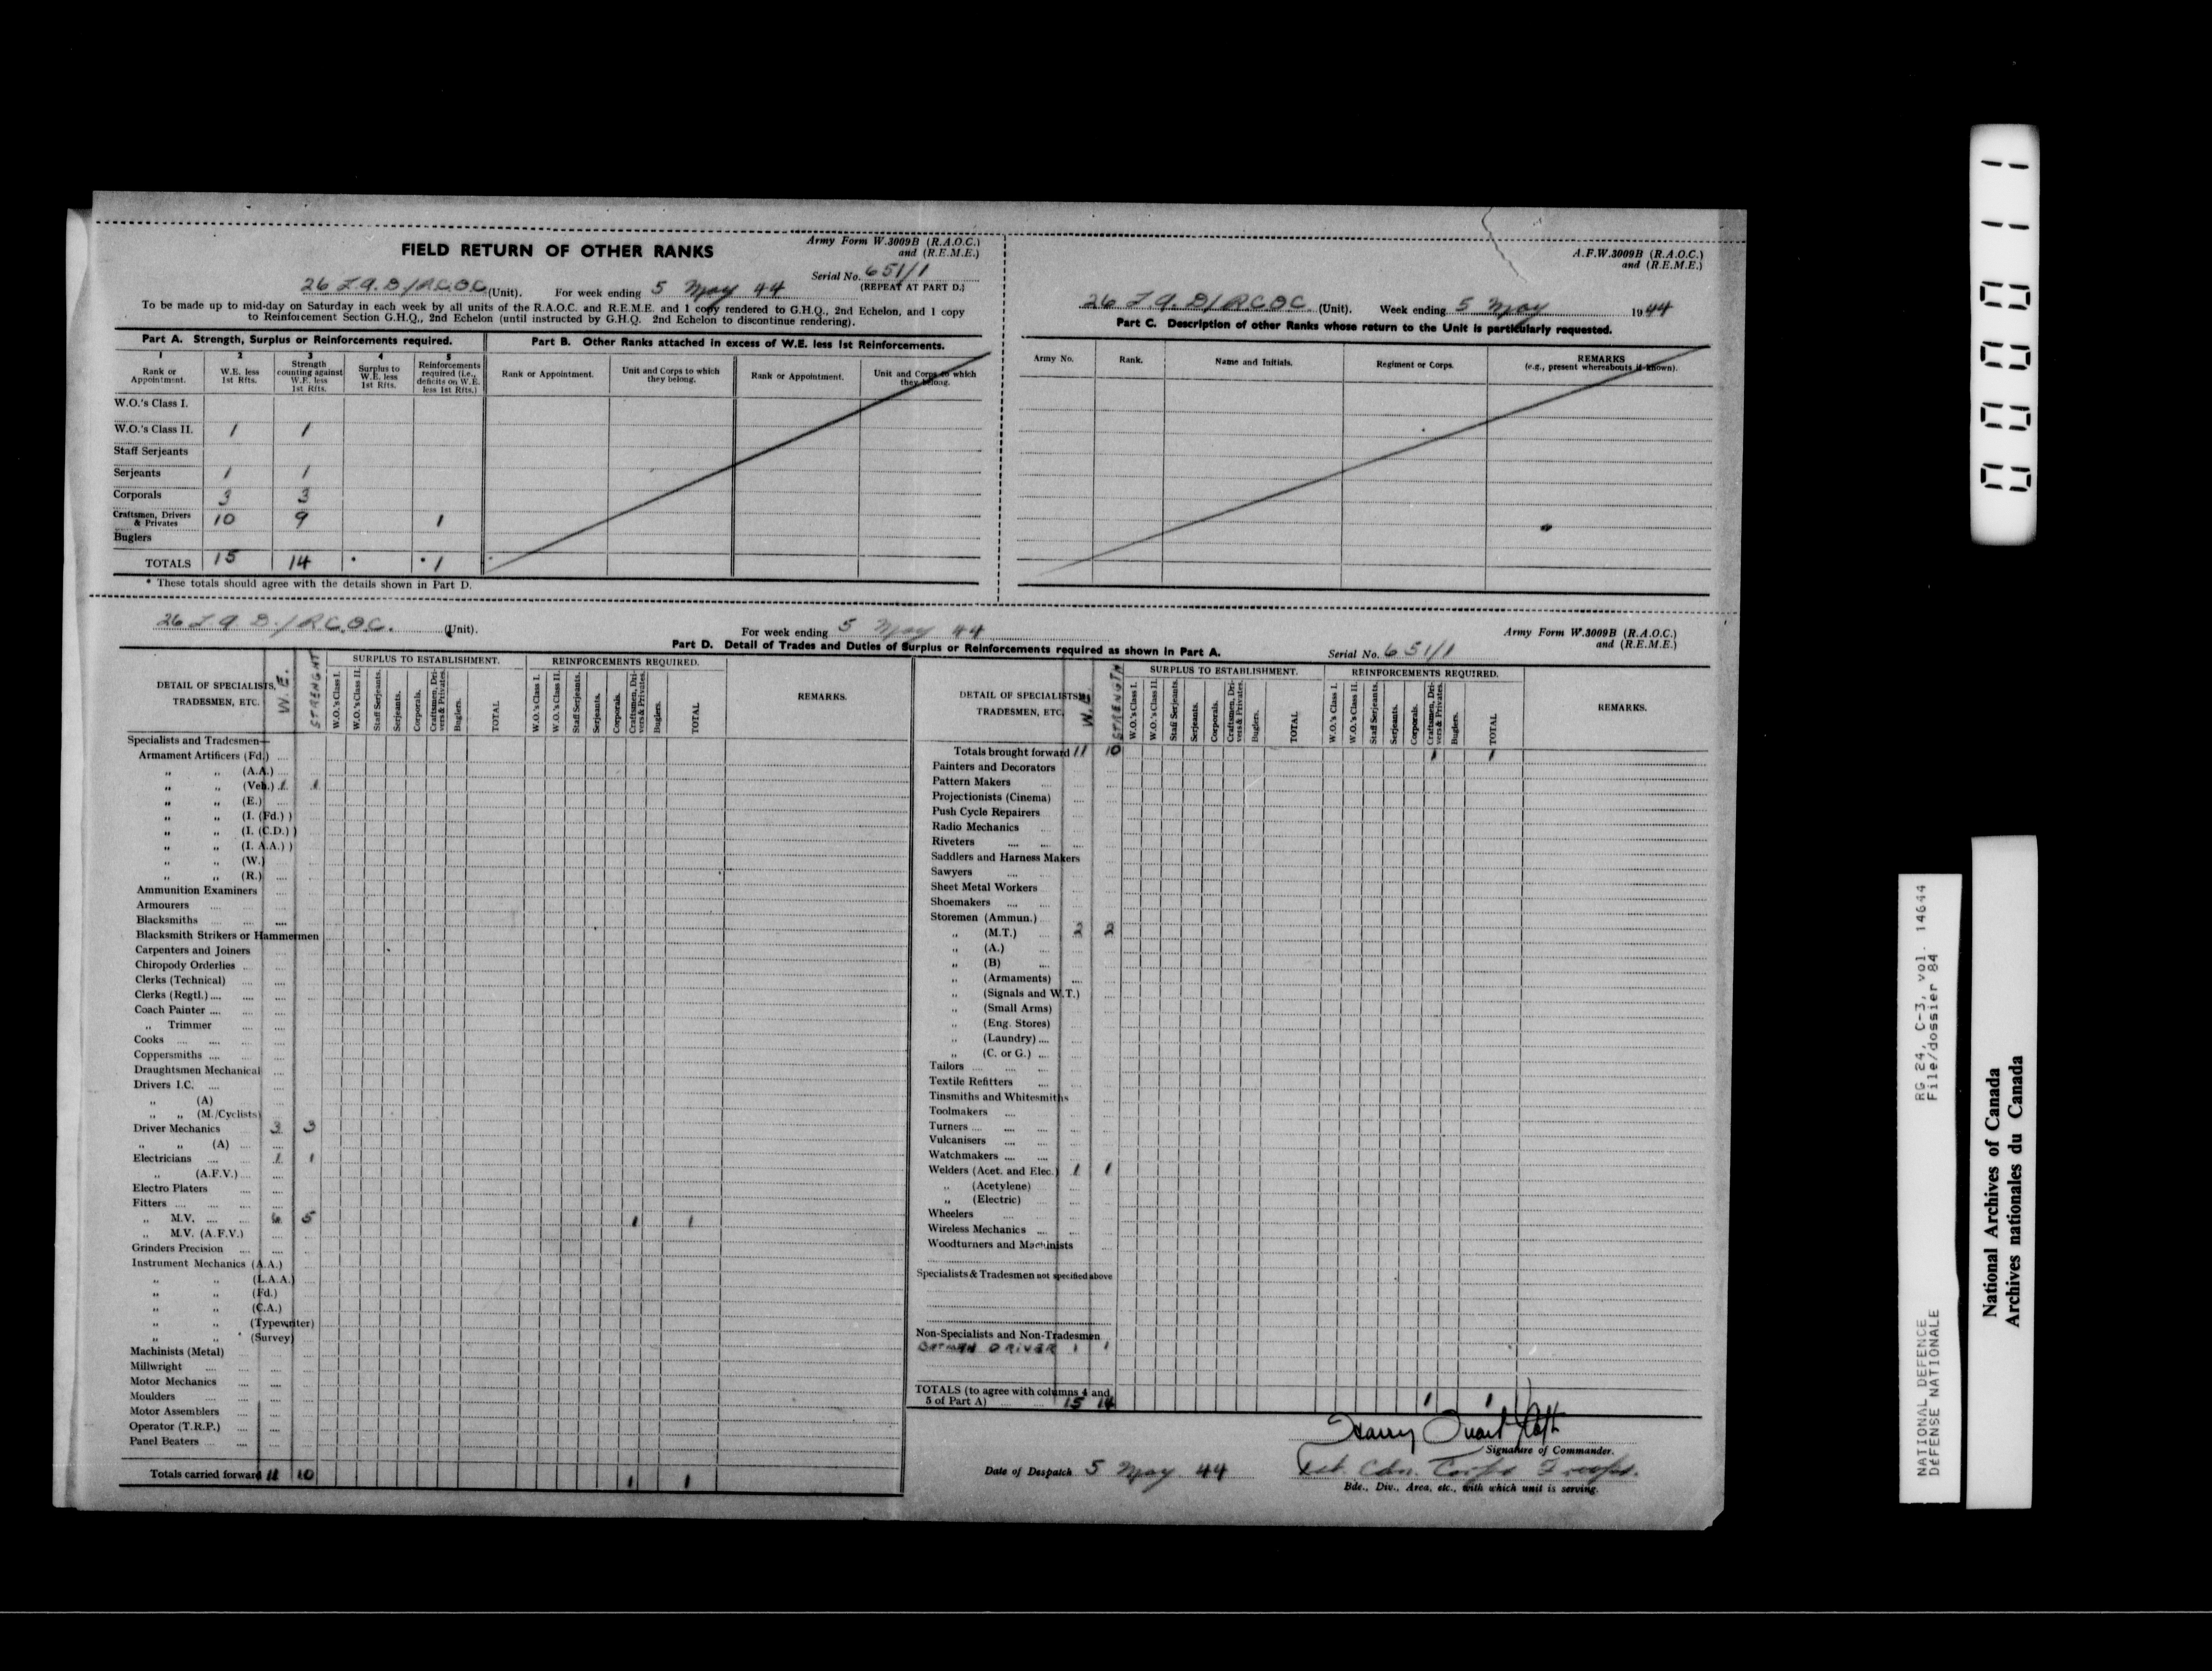 FIELD RETURN OF OTHER RANKS
Army Form W.3009B (R.A.O.C.)
and (R.E.M.E.)
Serial No. 651/1
(REPEAT AT PART D.)
26 L.A.D/RCOC (Unit). For week ending 5 May 44
To be made up to mid-day on Saturday in each week by all units of the R.A.O.C. and R.E.M.E. and 1 copy rendered to G.H.Q., 2nd Echelon, and 1 copy
to Reinforcement Section G.H.Q., 2nd Echelon (until instructed by G.H.Q. 2nd Echelon to discontinue rendering).
Part A. Strength, Surplus or Reinforcements required.
1 2 3 4 5
Rank or Appointment. W.E. less 1st Rfts. Strength counting against W.E. less 1st Rfts. Surplus to W.E. less 1st Rfts. Reinforcements required (i.e., deficits on W.E. less 1st Rfts.)
W.O.'s Class I.
W.O.'s Class II. 1 1
Staff Serjeants
Serjeants 1 1
Corporals 3 3
Craftsmen, Drivers & Privates 10 9 1
Buglers
TOTALS 15 14 * * 1
* These totals should agree with the details shown in Part D.
Part B. Other Ranks attached in excess of W.E. less 1st Reinforcements.
Rank or Appointment. Unit and Corps to which they belong. Rank or Appointment. Unit and Corps to which they belong.
A.F.W.3009B (R.A.O.C.)
and (R.E.M.E.)
26 L.A.D/RCOC. (Unit). Week ending 5 May 1944
Part C. Description of other Ranks whose return to the Unit is particularly requested.
Army No. Rank. Name and Initials. Regiment or Corps. REMARKS (e.g., present whereabouts if known).
26 L A D./RC.O.C. (Unit).
For week ending 5 May 44
Army Form W.3009B (R.A.O.C.)
and (R.E.M.E.)
Part D. Detail of Trades and Duties of Surplus or Reinforcements required as shown in Part A.
Serial No. 651/1
DETAIL OF SPECIALISTS, TRADESMEN, ETC. W.E. STRENGHT
SURPLUS TO ESTABLISHMENT.
W.O.'s Class I. W.O.'s Class II. Staff Serjeants. Serjeants. Corporals. Craftsmen, Drivers & Privates. Buglers. TOTAL
REINFORCEMENTS REQUIRED.
W.O.'s Class I. W.O.'s Class II. Staff Serjeants. Serjeants. Corporals. Craftsmen, Drivers & Privates. Buglers. TOTAL
REMARKS.
Specialists and Tradesmen—
Armament Artificers (Fd.)
" " (A.A.)
" " (Veh.) 1 1
" " (E.)
" " (I. (Fd.) )
" " (I. (C.D.) )
" " (I. A.A.) )
" " (W.)
" " (R.)
Ammunition Examiners
Armourers
Blacksmiths
Blacksmith Strikers or Hammermen
Carpenters and Joiners
Chiropody Orderlies
Clerks (Technical)
Clerks (Regtl.)
Coach Painter
" Trimmer
Cooks
Coppersmiths
Draughtsmen Mechanical
Drivers I.C.
" (A)
" " (M./Cyclists)
Driver Mechanics 3 3
" " (A)
Electricians 1 1
" (A.F.V.)
Electro Platers
Fitters
" M.V. 6 5 1 1
" M.V. (A.F.V.)
Grinders Precision
Instrument Mechanics (A.A.)
" " (L.A.A.)
" " (Fd.)
" " (C.A.)
" " (Typewriter)
" " (Survey)
Machinists (Metal)
Millwright
Motor Mechanics
Moulders
Motor Assemblers
Operator (T.R.P.)
Panel Beaters
Totals carried forward 11 10 1 1
DETAIL OF SPECIALISTS, TRADESMEN, ETC. W.E. STRENGTH
SURPLUS TO ESTABLISHMENT.
W.O.'s Class I. W.O.'s Class II. Staff Serjeants. Serjeants. Corporals. Craftsmen, Drivers & Privates. Buglers. TOTAL
REINFORCEMENTS REQUIRED.
W.O.'s Class I. W.O.'s Class II. Staff Serjeants. Serjeants. Corporals. Craftsmen, Drivers & Privates. Buglers. TOTAL
REMARKS.
Totals brought forward 11 10 1 1
Painters and Decorators
Pattern Makers
Projectionists (Cinema)
Push Cycle Repairers
Radio Mechanics
Riveters
Saddlers and Harness Makers
Sawyers
Sheet Metal Workers
Shoemakers
Storemen (Ammun.)
" (M.T.) 2 2
" (A.)
" (B)
" (Armaments)
" (Signals and W.T.)
" (Small Arms)
" (Eng. Stores)
" (Laundry)
" (C. or G.)
Tailors
Textile Refitters
Tinsmiths and Whitesmiths
Toolmakers
Turners
Vulcanisers
Watchmakers
Welders (Acet. and Elec.) 1 1
" (Acetylene)
" (Electric)
Wheelers
Wireless Mechanics
Woodturners and Machinists
Specialists & Tradesmen not specified above
Non-Specialists and Non-Tradesmen
BATMAN DRIVER 1 1
TOTALS (to agree with columns 4 and
5 of Part A) 15 14 1 1
Harry
Signature of Commander.
Date of Despatch 5 May 44
1st. Cdn. Corps Troops.
Bde., Div., Area, etc., with which unit is serving.
000011
RG 24, C-3, vol. 14644
File/dossier 84
NATIONAL DEFENCE
DÉFENSE NATIONALE
National Archives of Canada
Archives nationales du Canada